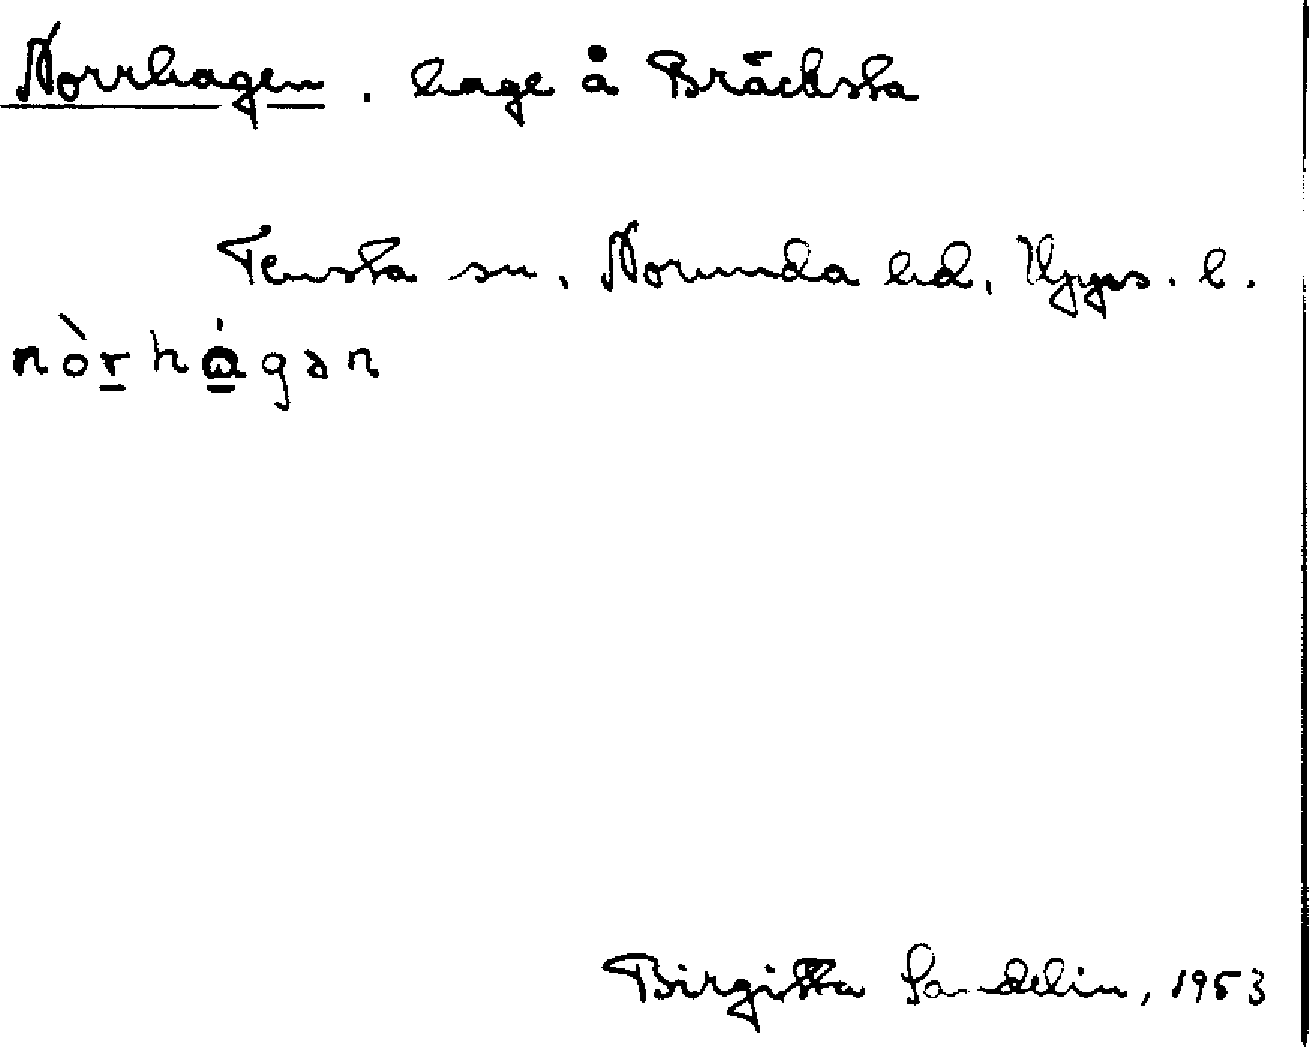 Norrhagen. hage å Bräcksta
Tensta sn, Norunda hd, Upps. l.
nòrhágən
Birgitta Sandelin, 1953